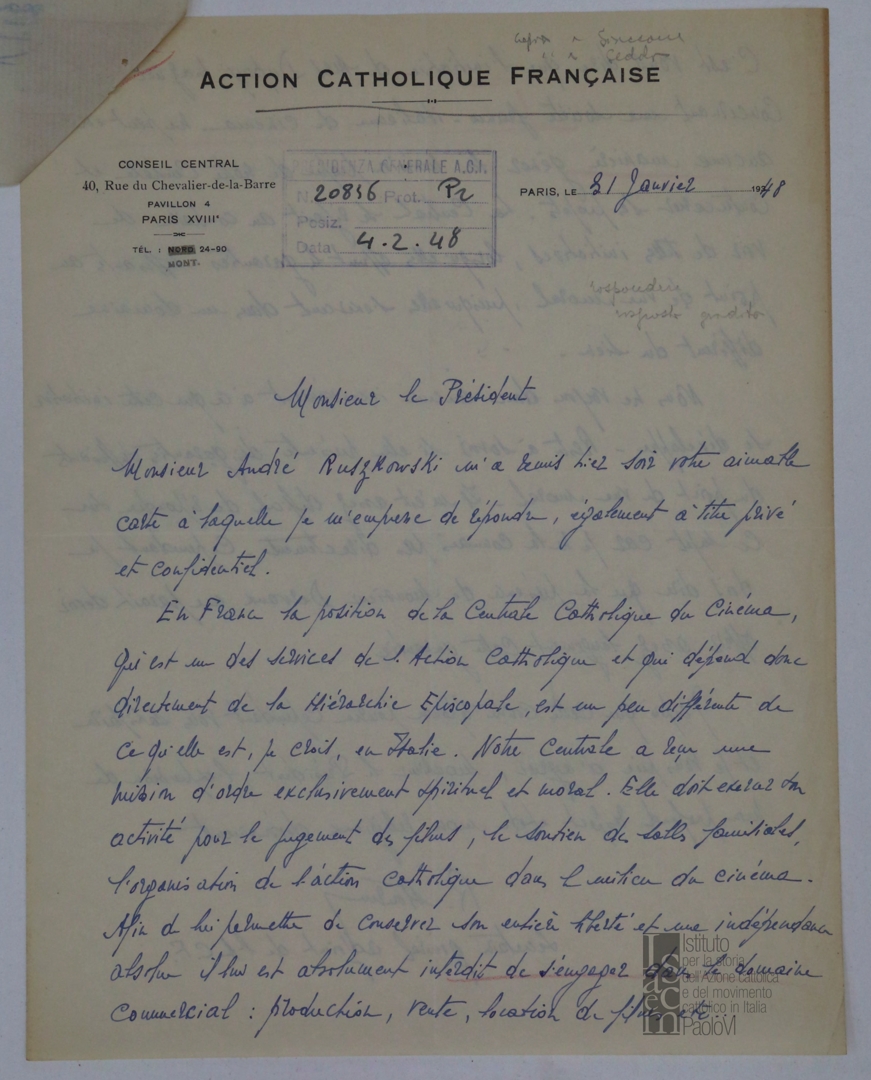 copia a
a Gedda
ACTION CATHOLIQUE FRANÇAISE
CONSEIL CENTRAL
40, Rue du Chevalier-de-la-Barre
PAVILLON 4
PARIS XVIIIe
TÉL. : NORD 24-90
MONT.
PRESIDENZA GENERALE A.C.I.
N. 20856 Prot. Pr
Posiz.
Data 4.2.48
PARIS, LE 31 Janvier 1948
rispondere
risposto
Monsieur le Président
Monsieur André Ruszkowski m'a remis hier soir votre aimable
carte à laquelle je m'empresse de répondre, également à titre privé
et confidentiel.
En France la position de la Centrale Catholique du Cinéma,
qui est un des services de l'Action Catholique et qui dépend donc
directement de la Hiérarchie Episcopale, est un peu différente de
ce qu'elle est, je crois, en Italie. Notre Centrale a reçu une
mission d'ordre exclusivement spirituel et moral. Elle doit exercer son
activité pour le jugement des films, le soutien des salles familiales,
l'organisation de l'action catholique dans le milieu du cinéma.
Afin de lui permettre de conserver son entière liberté et une indépendance
absolue il lui est absolument interdit de s'engager dans le domaine
commercial : production, vente, location de films etc.
Istituto
per la storia
dell'Azione cattolica
e del movimento
cattolico in Italia
PaoloVI